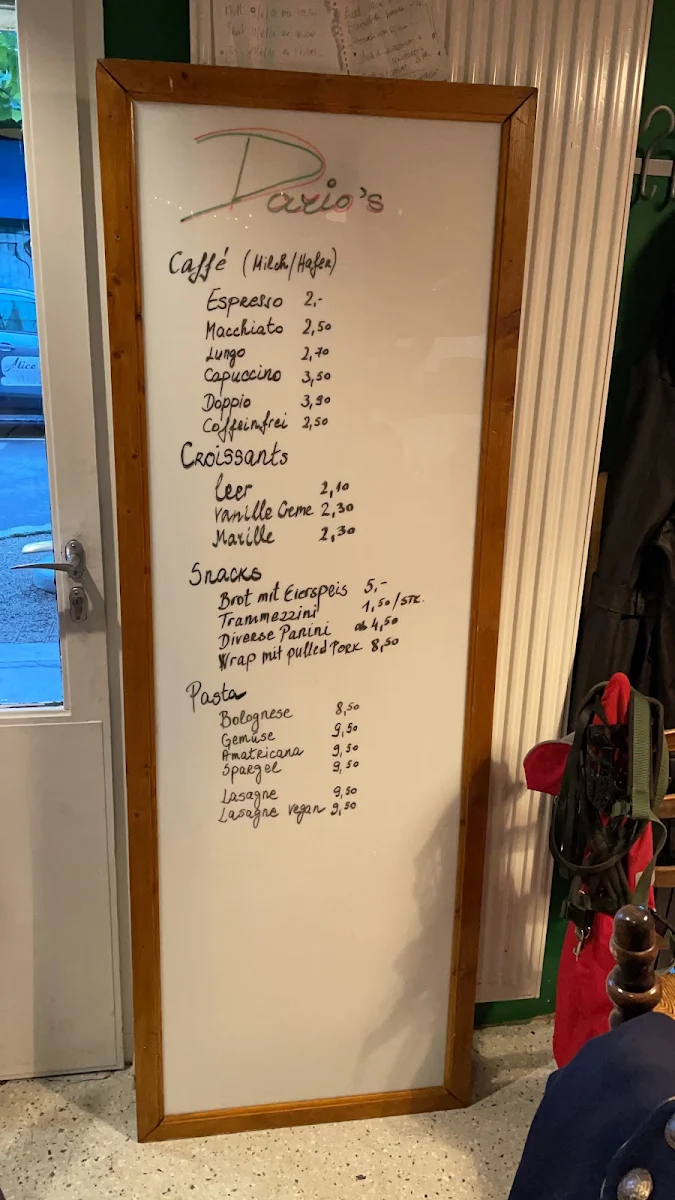 Dario's
Caffé (Milch/Hafer)
Espresso 2,-
Macchiato 2,50
Lungo 2,70
Capuccino 3,50
Doppio 3,90
Coffeinfrei 2,50
Croissants
leer 2,10
Vanille Creme 2,30
Marille 2,30
Snacks
Brot mit Eierspeis 5,-
Trammezzini 1,50/STK.
Diverse Panini ab 4,50
Wrap mit pulled Pork 8,50
Pasta
Bolognese 8,50
Gemüse 9,50
Amatricana 9,50
Spargel 9,50
Lasagne 9,50
Lasagne vegan 9,50
Alice